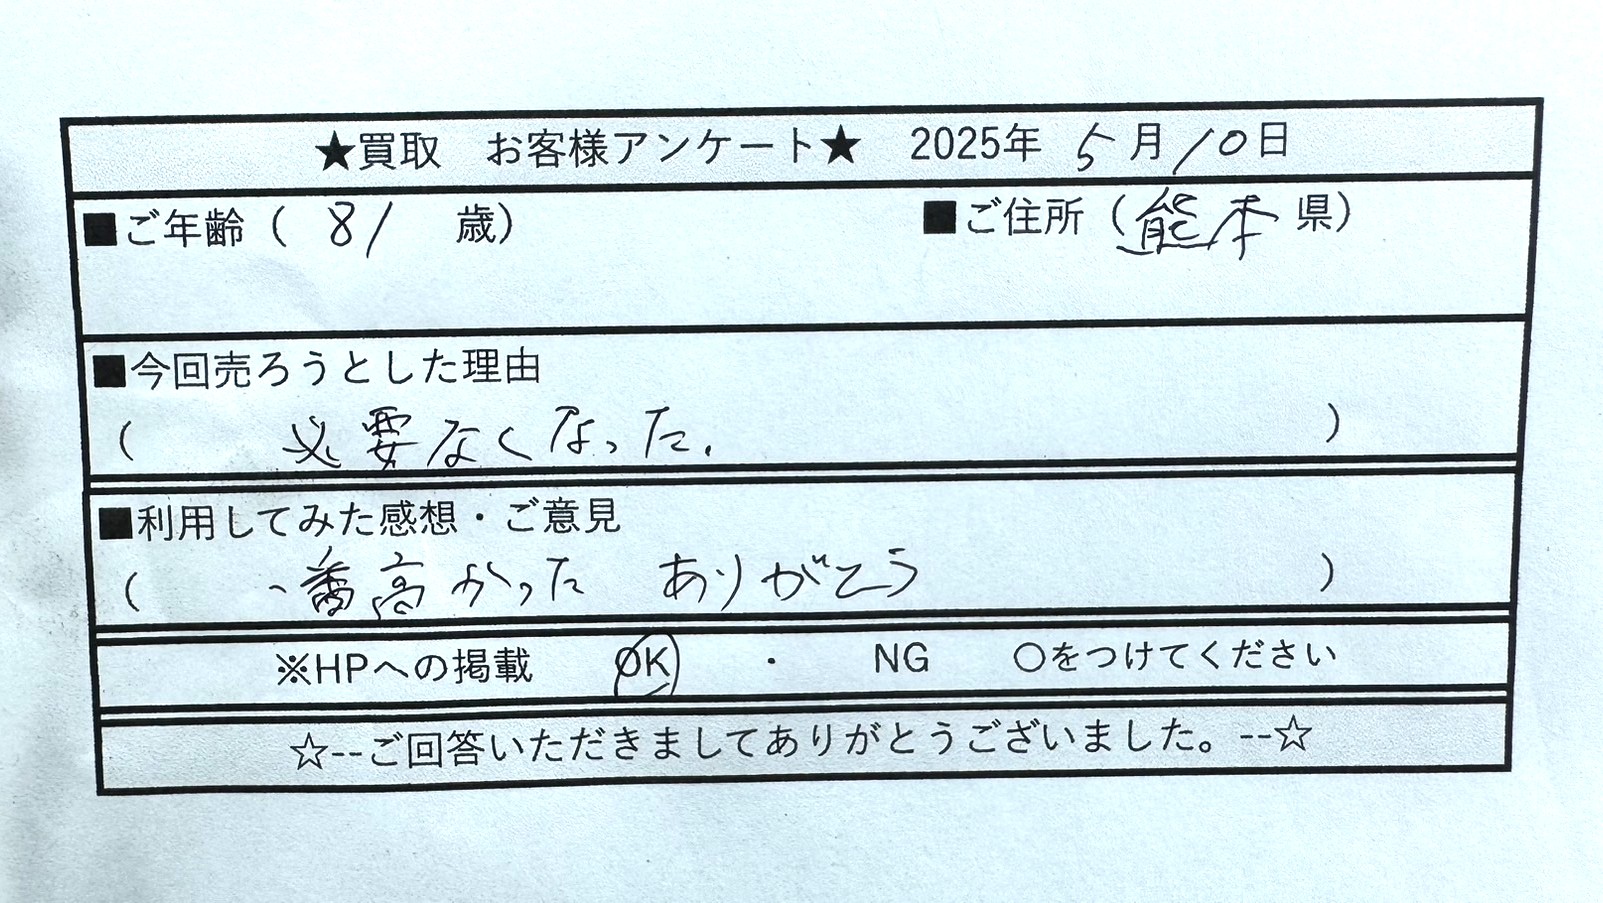 ★買取　お客様アンケート★　2025年 5月10日
■ご年齢（ 81　歳）　■ご住所（熊本 県）
■今回売ろうとした理由
（　必要なくなった.　）
■利用してみた感想・ご意見
（　一番高かった　ありがとう　）
※HPへの掲載　OK　・　NG　○をつけてください
☆--ご回答いただきましてありがとうございました。--☆